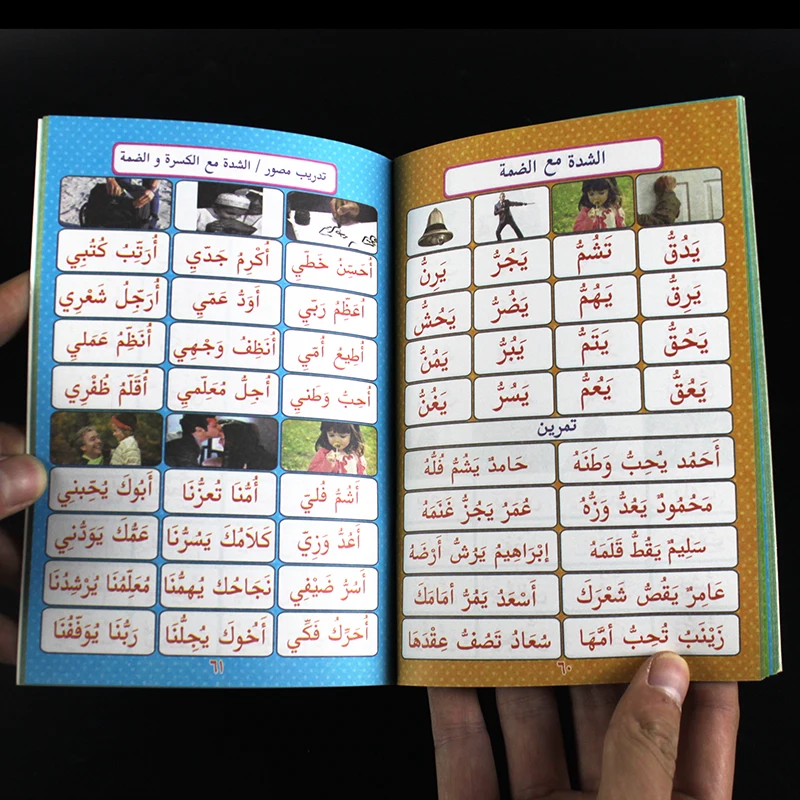 الشدة مع الضمة
يَدُقُّ تَشُمُّ يَجُرُّ يَرِنُّ
يَرِقُّ يَهُمُّ يَضُرُّ يَحُشُّ
يَحُقُّ يَتَمُّ يَبُرُّ يَمُنُّ
يَعُقُّ يَعُمُّ يَسُرُّ يَغُنُّ
تمرين
أَحَمُد يُحِبُّ وَطَنَهُ حَامدٌ يَشُمُّ فُلُّهُ
مَحُمُودٌ يَعُدُّ وَزُّهُ عُمَرُ يَجُزُّ غَنَمَهُ
سَلِيمٌ يَقُطُّ قَلَمَهُ إبْرَاهِيمُ يَرُشُّ أرْضَهُ
عَامِرٌ يَقُصُّ شَعْرَكَ أسْعَدُ يَمُرُّ أمَامَكَ
زَيْنَبُ تُحِبُّ أمَّهَا سُعَادُ تَصُفُّ عِقْدَهَا
٦٠
تدريب مصور / الشدة مع الكسرة و الضمة
أُحَسِّنُ خَطِّي أُكْرِمُ جَدِّي أُرَتِّبُ كُتُبِي
أُعَظِّمُ رَبِّي أَوَدُّ عَمِّي أُرَجِلُ شَعْرِي
أُطِيعُ أُمِّي أُنَظِفُ وَجْهِي أُنَظِّمُ عَمَلي
أُحِبُّ وَطَني أُجِلُّ مُعَلِّمي أُقَلِّمُ ظُفْرِي
أَشُمُّ فُلِيّ أُمُّنَا تُعزُّنَا أَبُوكَ يُحِّبني
أَعُدُّ وَزِّي كَلَامُكَ يَسُرُّنَا عَمُّكَ يَوَدُّنِي
أَسُرُّ ضَيْفِي نَجَاحُكَ يُهمُّنَا مُعَلِّمُنَا يُرْشِدُنَا
أُحَرِّكُ فَكِّي أَخُوكَ يُجِلُّنَا رَبُّنَا يُوَفِّقُنَا
٦١